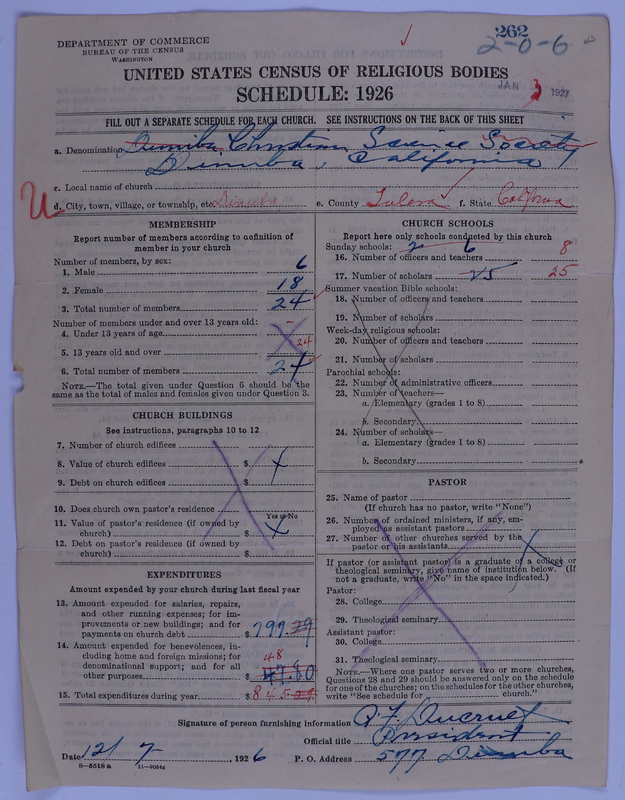 262
2-0-6
DEPARTMENT OF COMMERCE
BUREAU OF THE CENSUS
WASHINGTON
UNITED STATES CENSUS OF RELIGIOUS BODIES
SCHEDULE: 1926
JAN 3 1927
FILL OUT A SEPARATE SCHEDULE FOR EACH CHURCH. SEE INSTRUCTIONS ON THE BACK OF THIS SHEET
a. Denomination Dinuba Christian Science Society
Dinuba, California
c. Local name of church
d. City, town, village, or township, etc. Dinuba e. County Tulare f. State California
MEMBERSHIP
Report number of members according to definition of
member in your church
Number of members, by sex:
1. Male 6
2. Female 18
3. Total number of members 24
Number of members under and over 13 years old:
4. Under 13 years of age
5. 13 years old and over 24
6. Total number of members 24
NOTE.—The total given under Question 6 should be the
same as the total of males and females given under Question 3.
CHURCH BUILDINGS
See instructions, paragraphs 10 to 12
7. Number of church edifices
8. Value of church edifices $
9. Debt on church edifices $
10. Does church own pastor's residence
Yes or No
11. Value of pastor's residence (if owned by
church) $
12. Debt on pastor's residence (if owned by
church) $
EXPENDITURES
Amount expended by your church during last fiscal year
13. Amount expended for salaries, repairs,
and other running expenses; for im-
provements or new buildings; and for
payments on church debt $ 797.29
14. Amount expended for benevolences, in-
cluding home and foreign missions; for
denominational support; and for all
other purposes $ 47.80
48
15. Total expenditures during year $ 845
CHURCH SCHOOLS
Report here only schools conducted by this church
Sunday schools: 2 6
16. Number of officers and teachers 8
17. Number of scholars 25 25
Summer vacation Bible schools:
18. Number of officers and teachers
19. Number of scholars
Week-day religious schools:
20. Number of officers and teachers
21. Number of scholars
Parochial schools:
22. Number of administrative officers
23. Number of teachers—
a. Elementary (grades 1 to 8)
b. Secondary
24. Number of scholars—
a. Elementary (grades 1 to 8)
b. Secondary
PASTOR
25. Name of pastor
(If church has no pastor, write "None")
26. Number of ordained ministers, if any, em-
ployed as assistant pastors
27. Number of other churches served by the
pastor or his assistants
If pastor (or assistant pastor) is a graduate of a college or
theological seminary, give name of institution below. (If
not a graduate, write "No" in the space indicated.)
Pastor:
28. College
29. Theological seminary
Assistant pastor:
30. College
31. Theological seminary
NOTE.—Where one pastor serves two or more churches,
Questions 28 and 29 should be answered only on the schedule
for one of the churches; on the schedules for the other churches,
write "See schedule for church."
Signature of person furnishing information
Official title President
Date 12/7, 1926 P. O. Address 577 Dinuba
8—5518 a 11—9034a